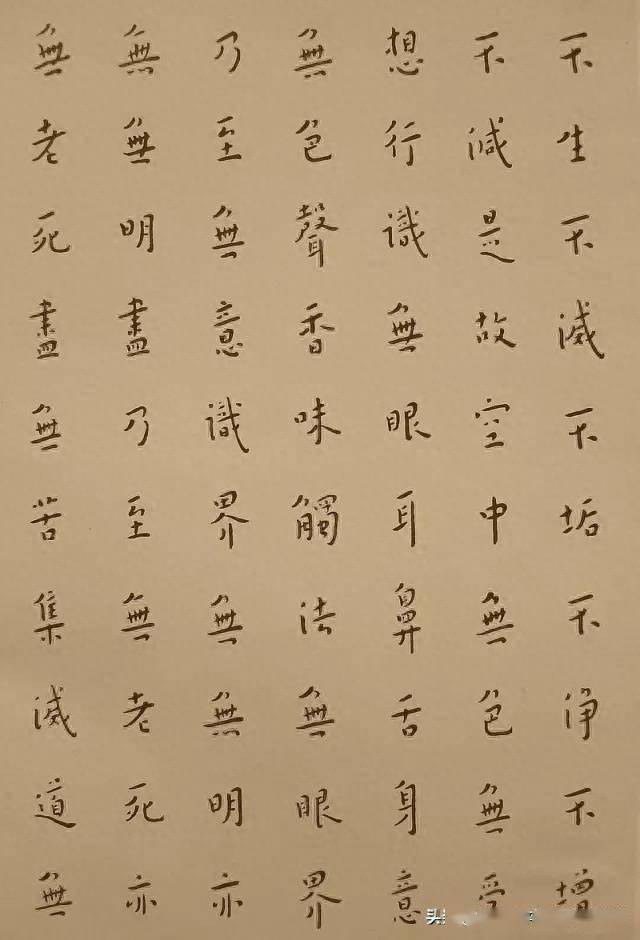 不生不滅不垢不淨不增
不減是故空中無色無受
想行識無眼耳鼻舌身意
無色聲香味觸法無眼界
乃至無意識界無無明亦
無無明盡乃至無老死亦
無老死盡無苦集滅道無
头